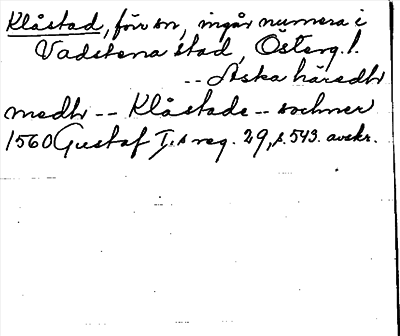 Klåstad, förr sn, ingår numera i
Vadstena stad, Österg. l.
-- Aska häredhr
medhr -- Klåstade -- sochner
1560 Gustaf I:s reg. 29, s. 543. avskr.